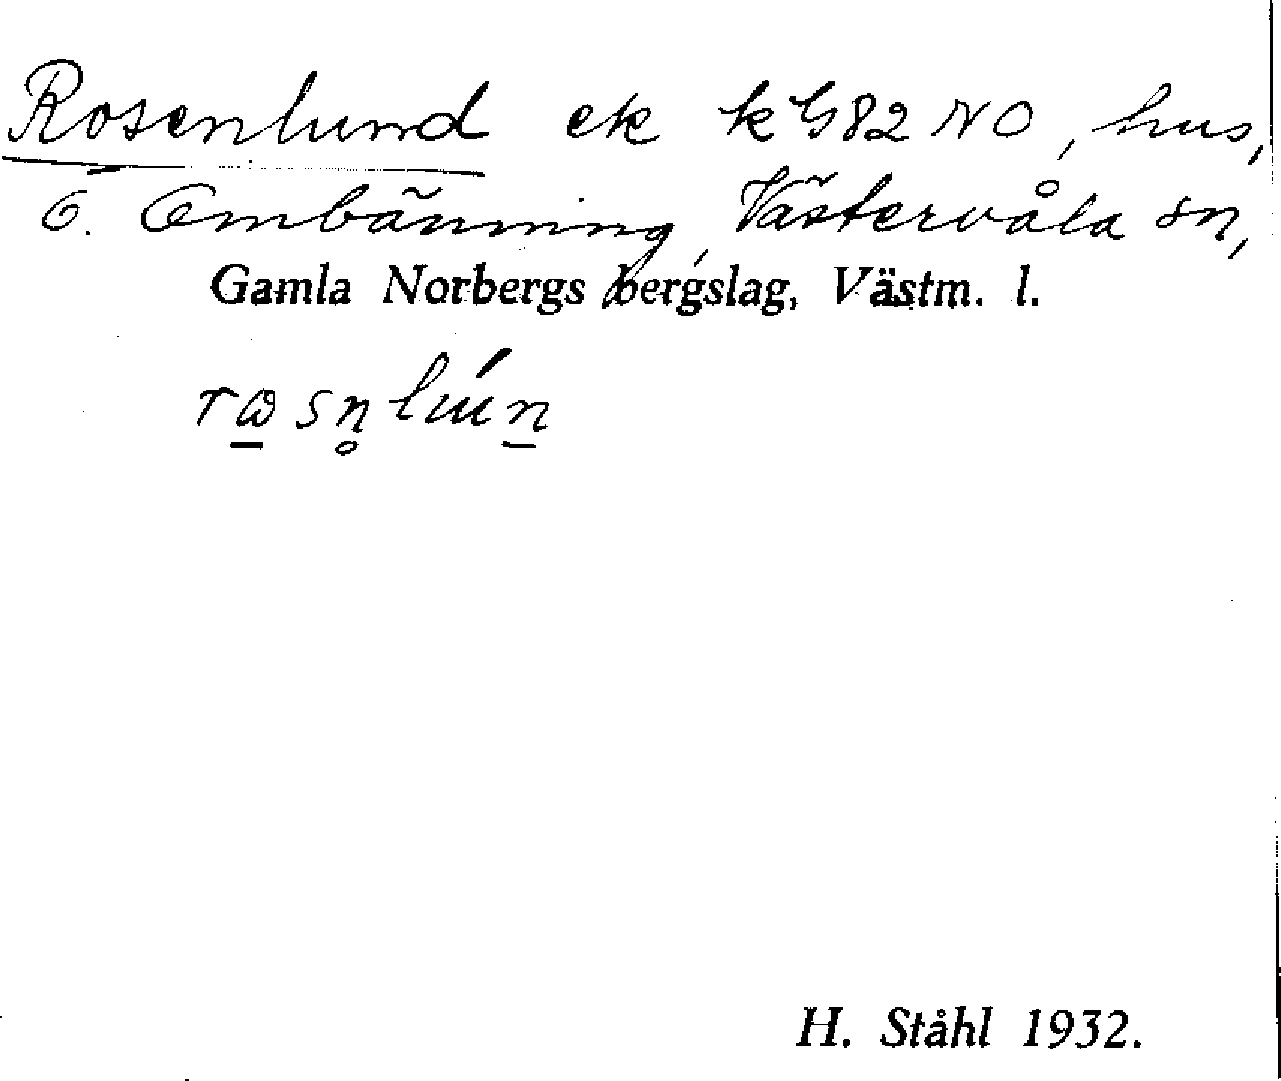 Rosenlund ek kG82 NO, hus,
Ö. Ombänning, Västervåla sn,
Gamla Norbergs bergslag, Västm. l.
H. Ståhl 1932.